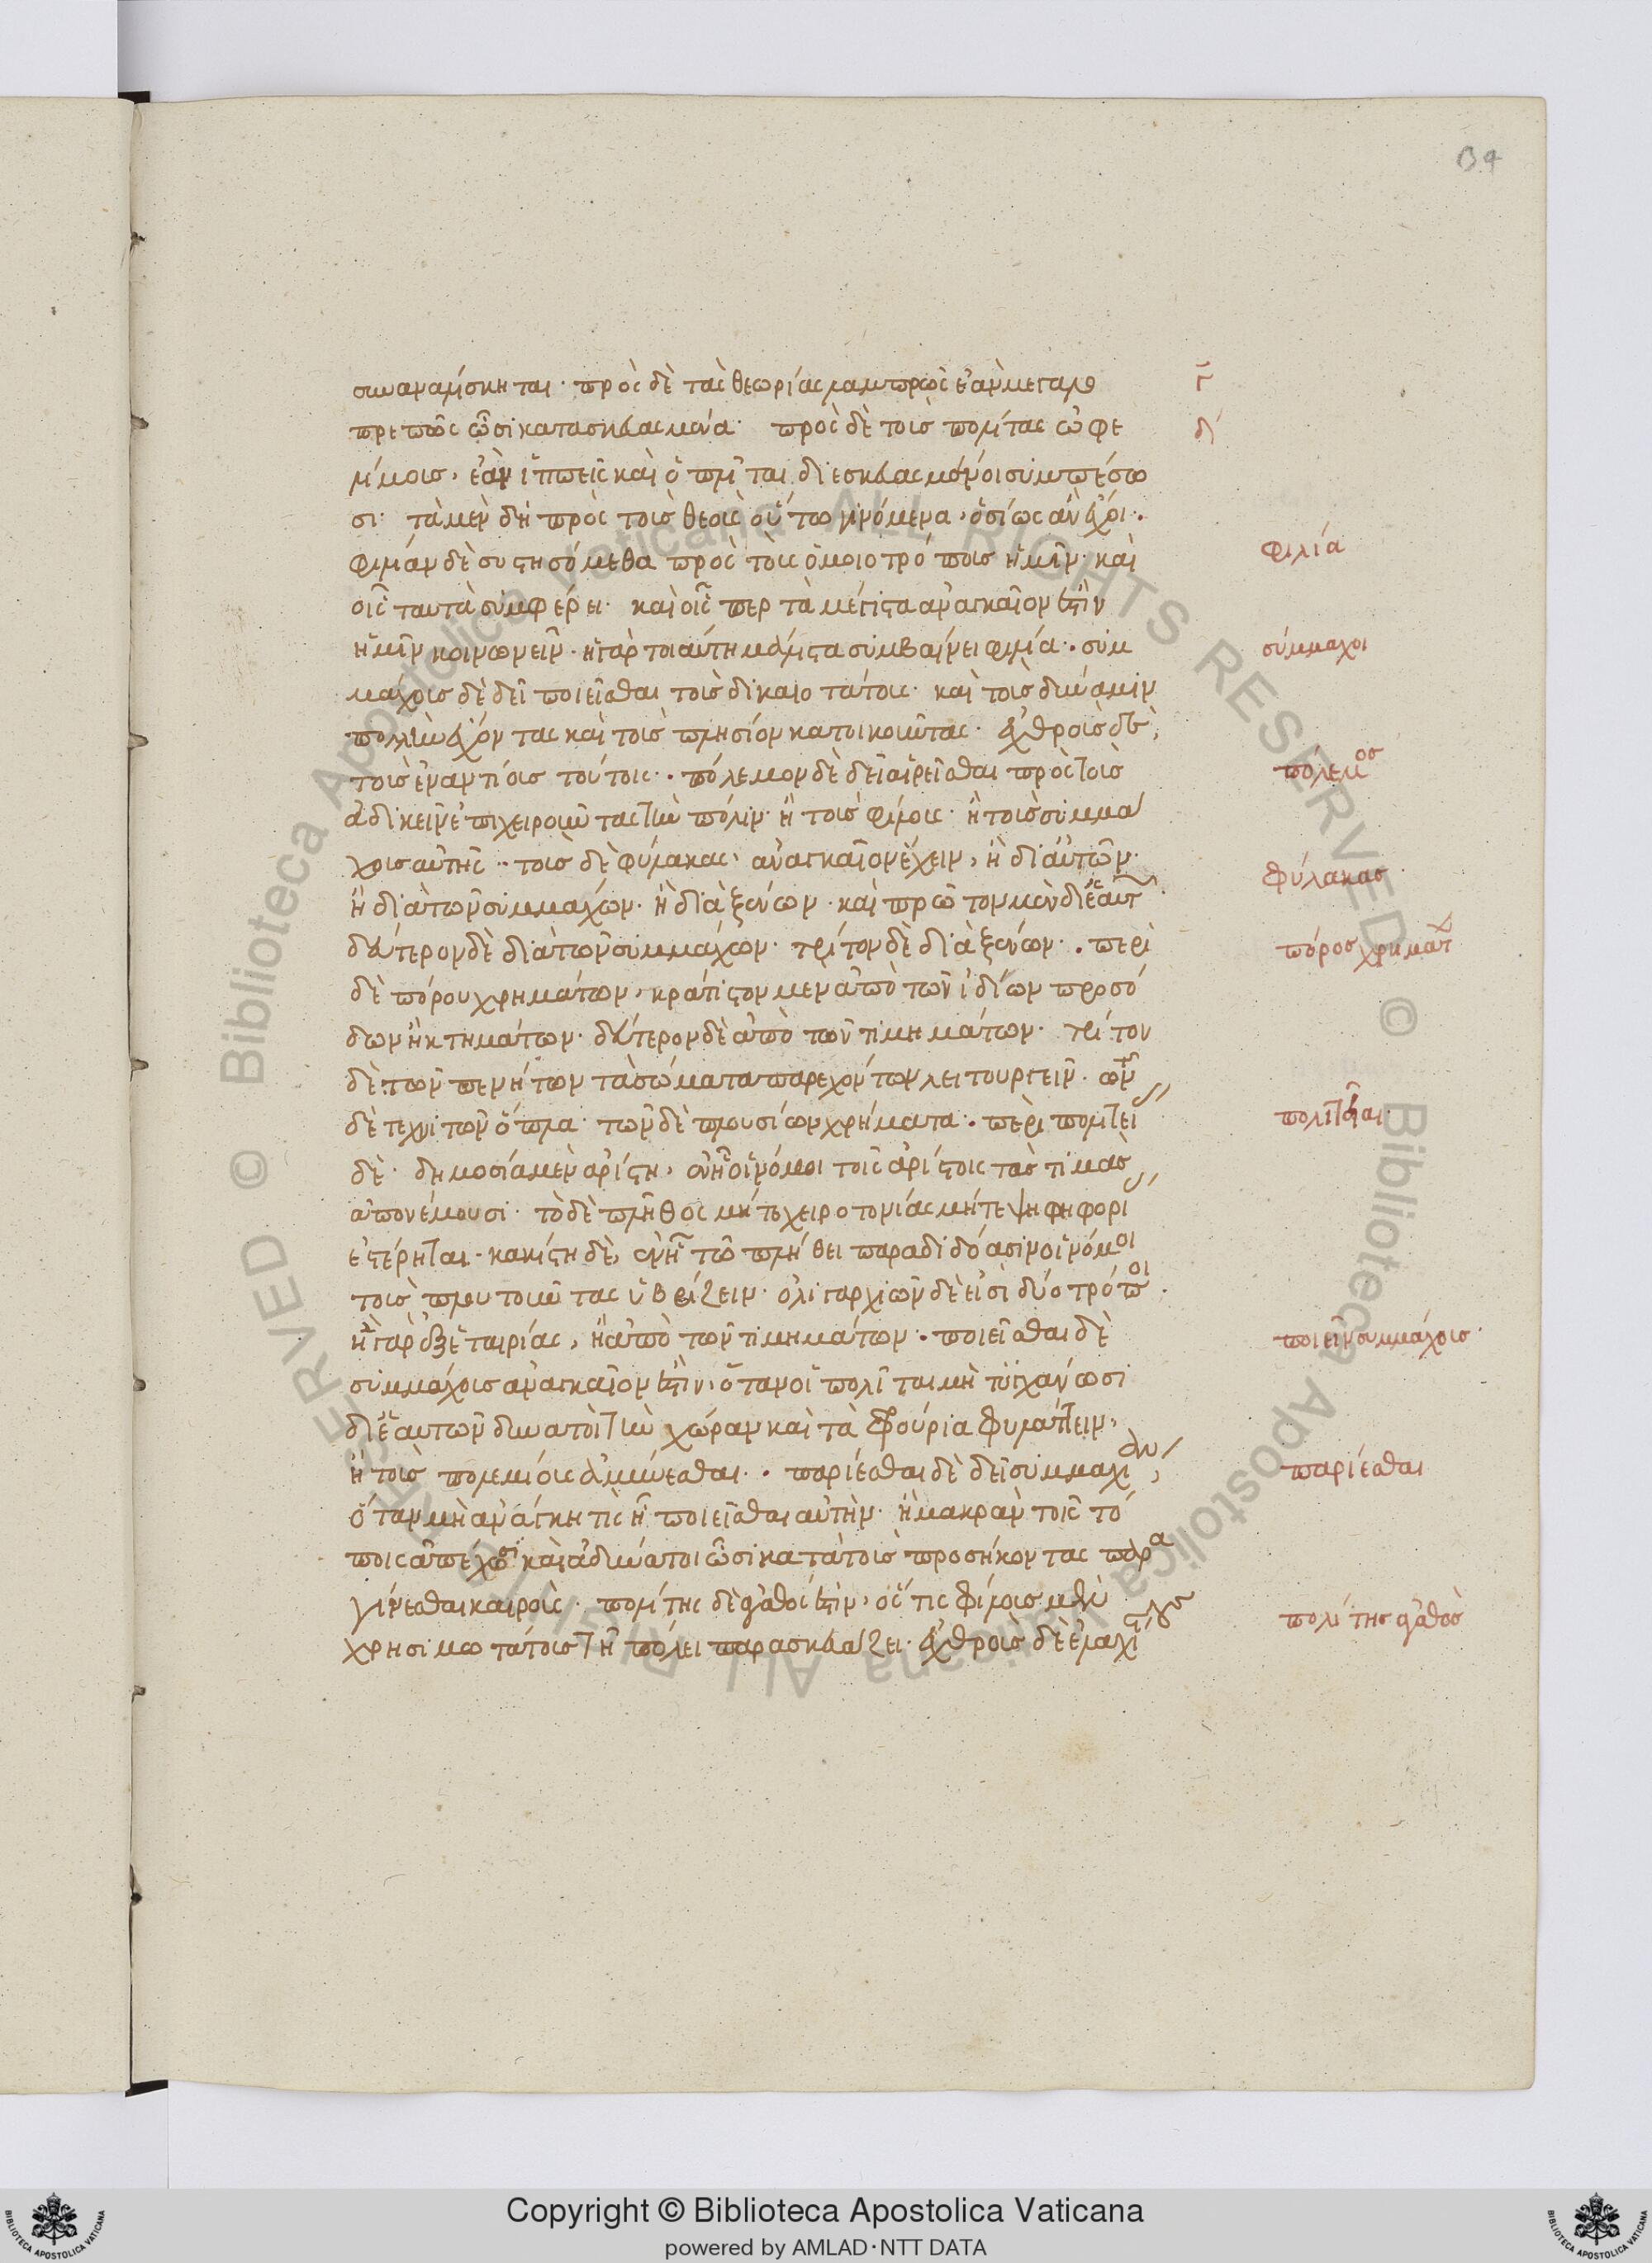 συναναλίσκηται· πρὸς δὲ τὰς θεωρίας λαμπρῶς ἐὰν μεγαλο
γ
πρεπῶς ὦσι κατασκευασμένα· πρὸς δὲ τοὺς πολίτας ὠφε
δ
λίμους, ἐὰν ἱππεῖς καὶ ὁπλῖται διεσκευασμένοι συμπέσω
σι· τὰ μὲν δὴ πρὸς τοὺς θεοὺς οὕτω γινόμενα, ὁσίως ἂν ἔχοι·
φιλίαν δὲ συστησόμεθα πρὸς τοὺς ὁμοιοτρόπους ἡμῖν· καὶ
φιλία
οἷς ταυτὰ συμφέρει· καὶ οἷς περ τὰ μέγιστα ἀναγκαῖον ἐστὶν
ἡμῖν κοινωνεῖν· ἡ γὰρ τοιαύτη μάλιστα συμβαίνει φιλία· συμ
σύμμαχοι
μάχους δὲ δεῖ ποιεῖσθαι τοὺς δικαιοτάτους· καὶ τοὺς δύναμιν
πολλὴν ἔχοντας καὶ τοὺς πλησίον κατοικοῦντας· ἐχθροὺς δὲ,
τοὺς ἐναντίους τούτοις· πόλεμον δὲ δεῖ αἱρεῖσθαι πρὸς τοὺς
πόλεμος
ἀδικεῖν ἐπιχειροῦντας τὴν πόλιν· ἢ τοὺς φίλους· ἢ τοὺς συμμά
χους αὐτῆς· τοὺς δὲ φύλακας, ἀναγκαῖον ἔχειν, ἢ δι' αὑτῶν·
φύλακας
ἢ διὰ τῶν συμμάχων· ἢ διὰ ξένων· καὶ πρῶτον μὲν δι' ἑαυτῶν·
δεύτερον δὲ διὰ τῶν συμμάχων· τρίτον δὲ διὰ ξένων· περὶ
πόρος χρημάτων
δὲ πόρου χρημάτων, κράτιστον μὲν ἀπὸ τῶν ἰδίων προσό
δων ἢ κτημάτων· δεύτερον δὲ ἀπὸ τῶν τιμημάτων· τρίτον
δὲ τῶν πενήτων τὰ σώματα παρεχόντων λειτουργεῖν· τῶν
δὲ τεχνιτῶν ὅπλα· τῶν δὲ πλουσίων χρήματα· περὶ πολιτείας
πολιτεῖαι
δὲ· δημοσία μὲν ἀρίστη, ἐν ᾗ οἱ νόμοι τοῖς ἀρίστοις τὰς τιμὰς
ἀπονέμουσι· τὸ δὲ πλῆθος μήτε χειροτονίας μήτε ψηφηφορίας
ἐστέρηται· κακίστη δὲ, ἐν ᾗ τῶ πλήθει παραδιδόασιν οἱ νόμοι
τοὺς πλουτοῦντας ὑβρίζειν· ὀλιγαρχιῶν δὲ εἰσὶ δύο τρόποι·
ἢ γὰρ ἐξ ἑταιρίας, ἢ ἀπὸ τῶν τιμημάτων· ποιεῖσθαι δὲ
ποιεῖν συμμάχους
συμμάχους ἀναγκαῖον ἐστὶν, ὅταν οἱ πολῖται μὴ τυγχάνωσι
δι' ἑαυτῶν δυνατοὶ τὴν χώραν καὶ τὰ φρούρια φυλάττειν,
ἢ τοὺς πολεμίους ἀμύνεσθαι· παρίεσθαι δὲ δεῖ συμμαχίαν,
παρίεσθαι
ὅταν μὴ ἀνάγκη τὶς ἦ ποιεῖσθαι αὐτὴν· ἢ μακρὰν τοῖς τό
ποις ἀπέχωσι καὶ ἀδύνατοι ὦσι κατὰ τοὺς προσήκοντας παρα
γίνεσθαι καιροὺς· πολίτης δὲ ἀγαθὸς ἐστὶν, ὅς τις φίλους μὲν
πολίτης ἀγαθὸς
χρησιμωτάτους τῆ πόλει παρασκευάζει· ἐχθροὺς δὲ ἐλαχίστους